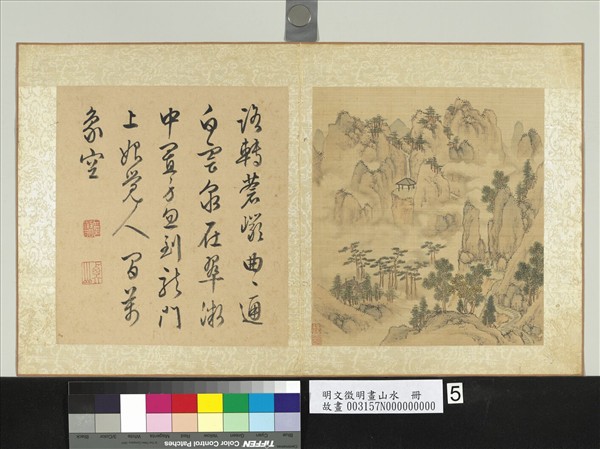 路轉蒼巖曲〻通
白雲泉在翠微
中置身忽到龍門
上始覺人間萬
象空
明文徵明畫山水 冊
故畫 003157N000000000
5
Blue Cyan Green Yellow Red Magenta White 3/Color Black
TIFFEN Color Control Patches